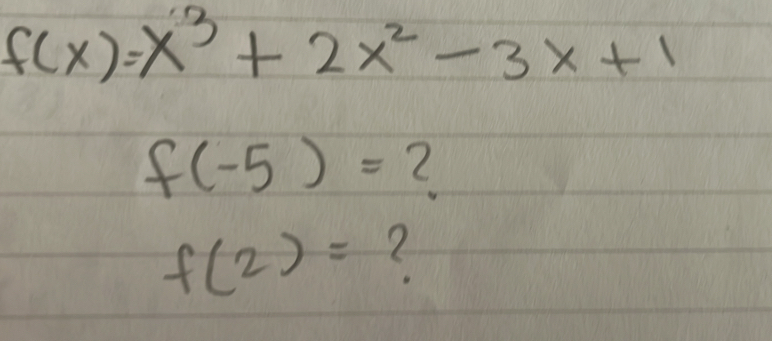 f(x)=x³ + 2x² - 3x + 1
f(-5) = ?
f(2) = ?